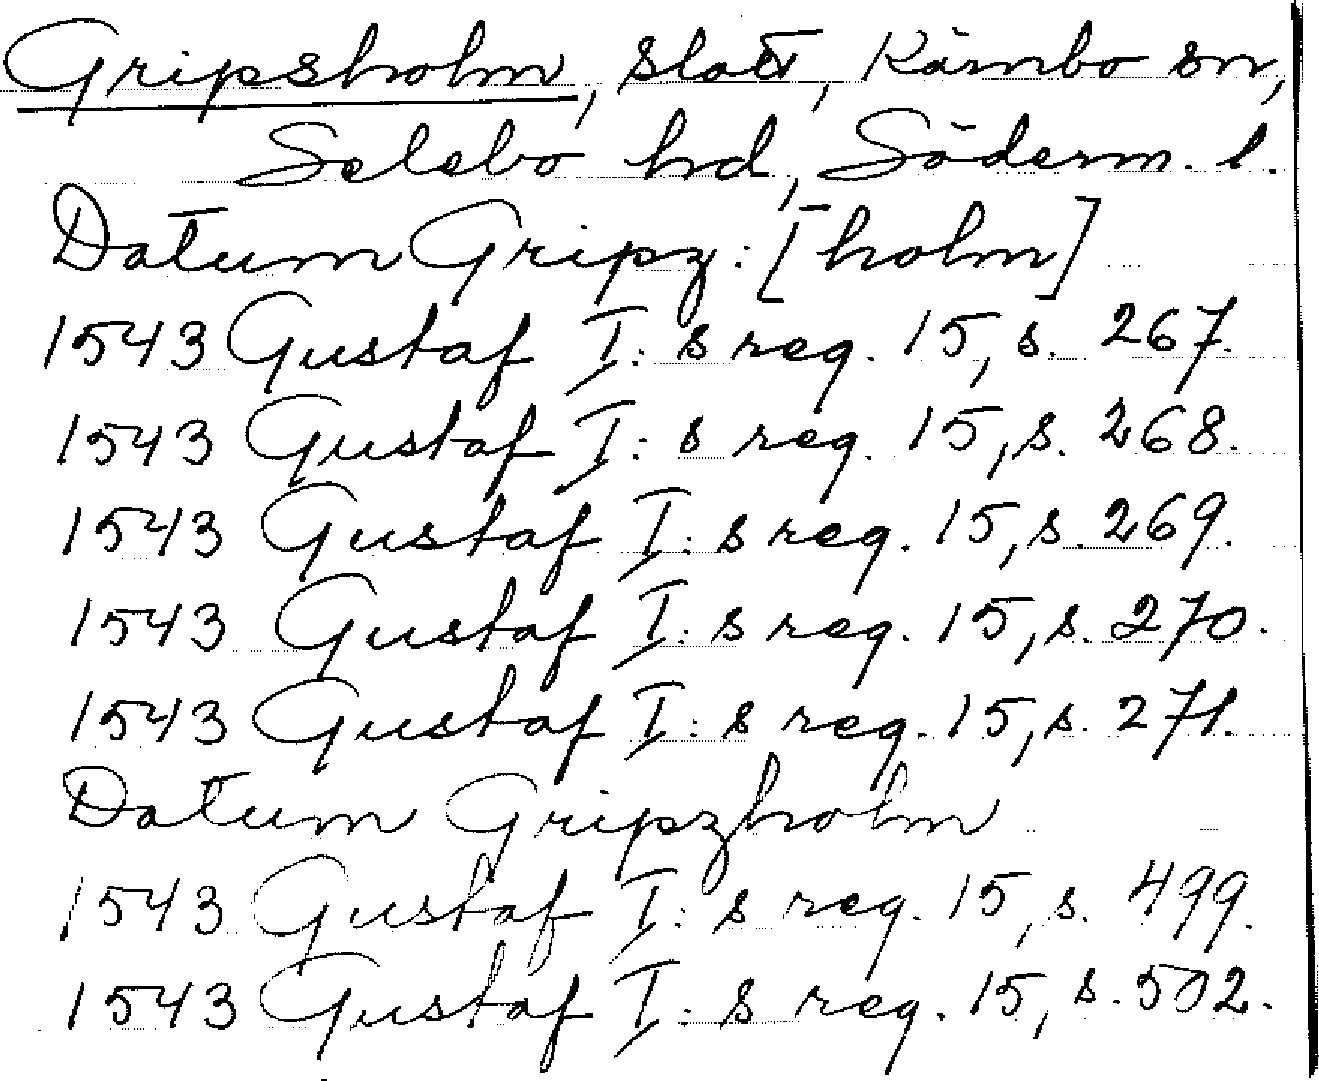 Gripsholm, slott, Kärnbo sn,
Selebo hd, Söderm. l.
Datum Gripz: [holm]
1543 Gustaf I: s reg. 15, s. 267.
1543 Gustaf I: s reg. 15, s. 268.
1543 Gustaf I: s reg. 15, s. 269.
1543 Gustaf I: s reg. 15, s. 270.
1543 Gustaf I: s reg. 15, s. 271.
Datum Gripzholm
1543 Gustaf I: s reg. 15, s. 499.
1543 Gustaf I: s reg. 15, s. 502.